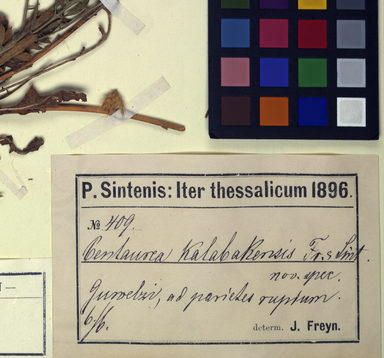 P. Sintenis: Iter thessalicum 1896.
№ 409.
Centaurea Kalabakensis Fr. & Sint.
nov. spec.
ad parietes rupium.
6/6.
determ. J. Freyn.